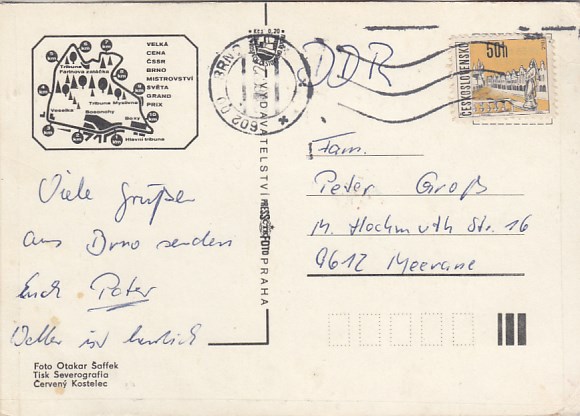 VELKÁ
CENA
ČSSR
BRNO
MISTROVSTVÍ
SVĚTA
GRAND
PRIX
Tribuna
Farinova zatáčka
Tribuna Myslivna
Veselka
Bosonohy
Boxy
Hlavní tribuna
Viele Grüßen
aus Brno senden
Euch Pater
Wetter ist herrlich
Foto Otakar Šaffek
Tisk Severografia
Červený Kostelec
Kčs 0,20
VYDAVATELSTVÍ PRAHA
602 00 BRNO 2
DDR
50h
ČESKOSLOVENSKO
Fam.
Peter Groß
M. Hochmuth Str. 16
9612 Meerane